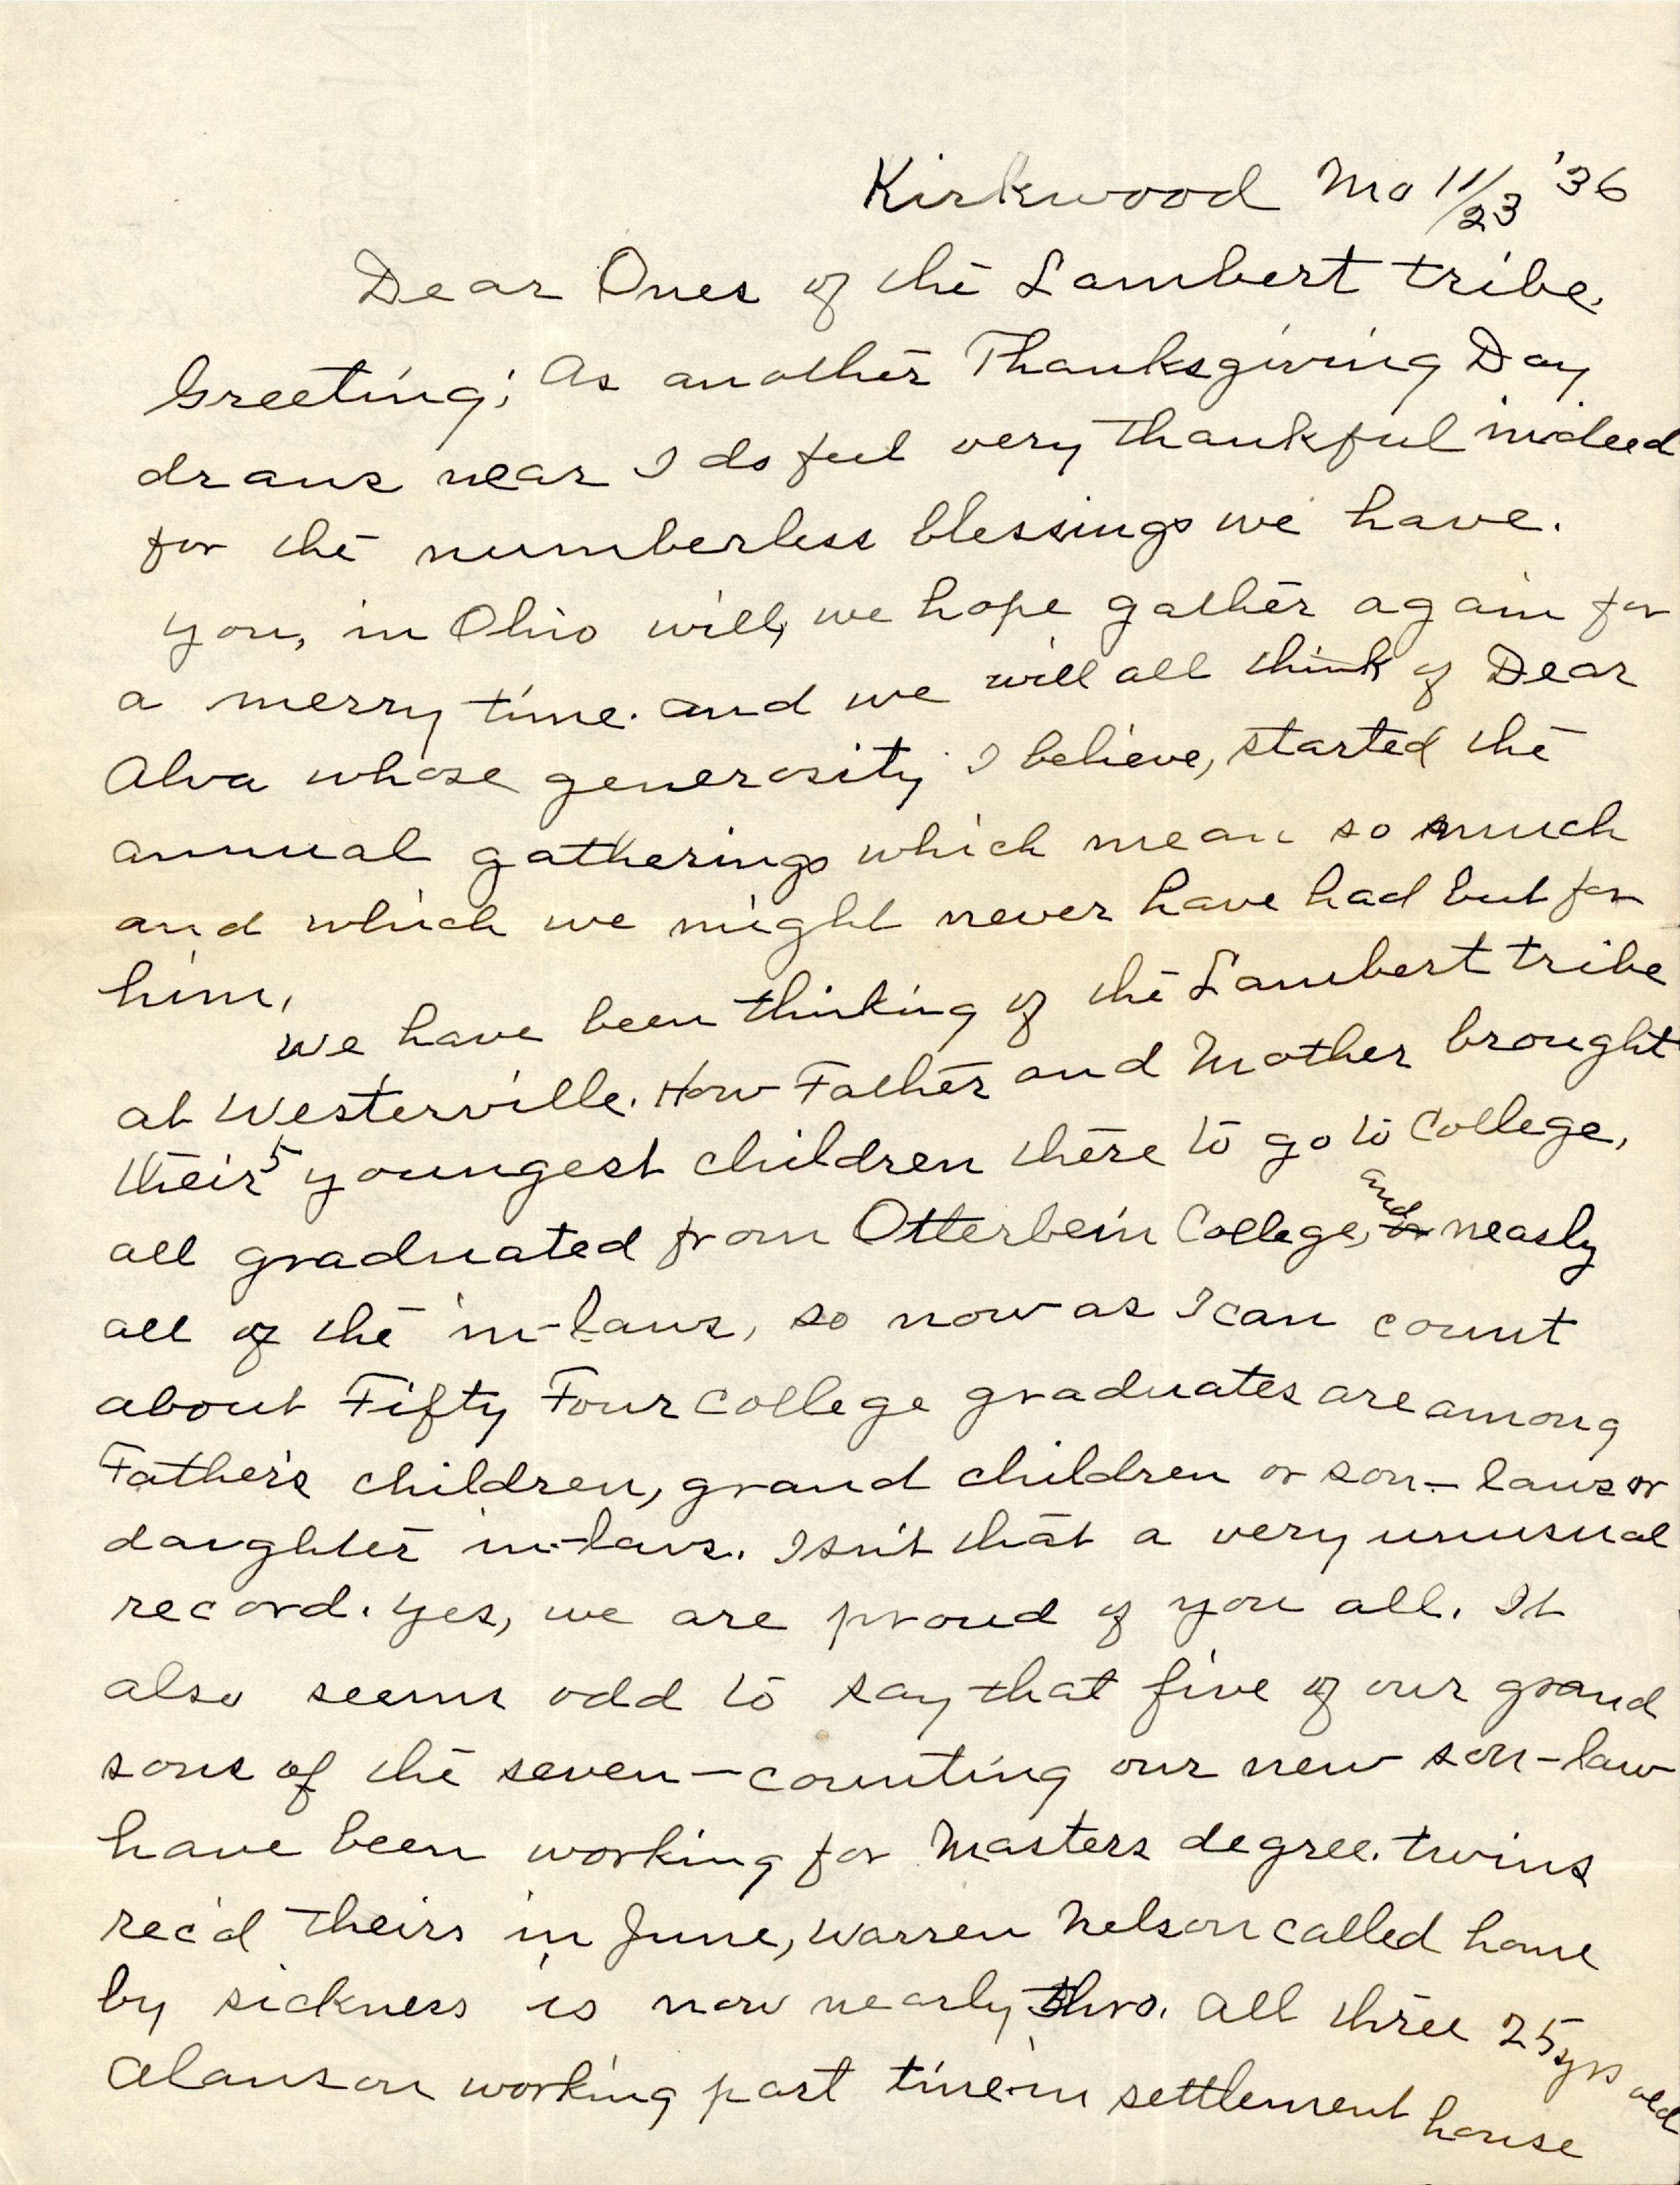 Kirkwood Mo 11/23 '36
Dear Ones of the Lambert tribe.
Greeting; As another Thanksgiving Day
draws near I do feel very thankful indeed
for the numberless blessings we have.
you, in Ohio will, we hope gather again for
a merry time. and we will all think of Dear
Alva whose generosity I believe, started the
annual gatherings which mean so much
and which we might never have had but for
him,
We have been thinking of the Lambert tribe
at Westerville. How Father and Mother brought
their 5 youngest children there to go to College,
all graduated from Otterbein College, and nearly
all of the in-laws, so now as I can count
about Fifty Four college graduates are among
Father's children, grand children or son-laws or
daughter in-laws. Isn't that a very unusual
record. Yes, we are proud of you all. It
also seems odd to say that five of our grand
sons of the seven—counting our new son-law
have been working for Masters degree. twins
rec'd theirs in June, Warren Nelson called home
by sickness is now nearly thro. All three 25 yrs old
Alanson working part time in settlement house